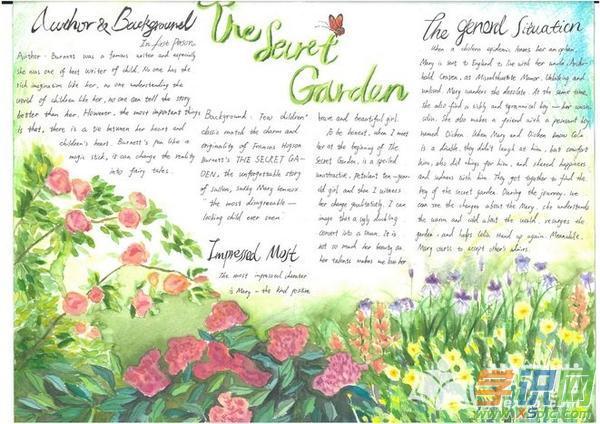 Author & Background
In first person
Author: Burnetts was a famous writer and especially
she was one of best writer of child. No one has the
rich imagination like her, no one understanding the
world of children like her, no one can tell the story
better than her. However, the most important things
is that, there is a tie between her heart and
children's heart. Burnett's pen like a
magic stick, it can change the reality
into fairy tales.
The
Secret
Garden
Background: Few children'
classic match the charm and
originality of Frances Hogson
Burnett's THE SECRET GA-
DEN, the unforgettable story
of sullen, sulky Mary Lennox
"the most disagreeable-
looking child ever seen"
Impressed Most
The most impressed character
is Mary - the kind positive
brave and beautiful girl.
To be honest, when I meet
her at the beginning of The
Secret Garden, is a spoiled
unattractive, petulant ten-year-
old girl, and then I witness
her change qualitatively, I can
image that a ugly duckling
convert into a swan. It is
not so much her beauty or
her talents makes me
The general Situation
When a cholera epidemic leaves her an orphan,
Mary is sent to England to live with her uncle, Archi-
bald Craven, at Misselthwaite Manor. Unloving and
unloved, Mary wanders the desolate. At the same time,
she also find a sickly and tyrannical boy - her
cousin. She also makes a friend with a peasant boy
named Dicken. When Mary and Dicken know Colin
is a disable, they didn't laugh at him, but comfort
him, she did things for him, and shared happiness
and sadness with him. They got together to find the
key of the secret garden. During the journey, we
can see the changes about the Mary, she understands
the warm and cold about the world, recharges the
garden, and helps Colin stand up again. Meanwhile,
Mary starts to accept other's
学识网
www.xspic.com